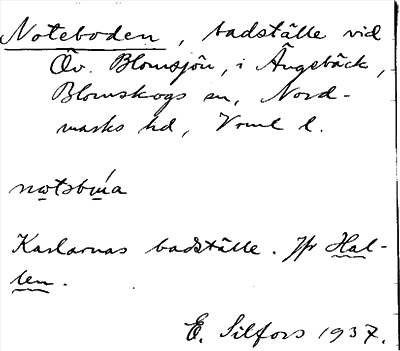 Noteboden, badställe vid
Öv. Blomsjön, i Ängebäck,
Blomskogs sn, Nord-
marks hd, Vrml l.
nǫtsbua
Karlarnas badställe. Jfr Hal-
len.
E. Silfors 1937.